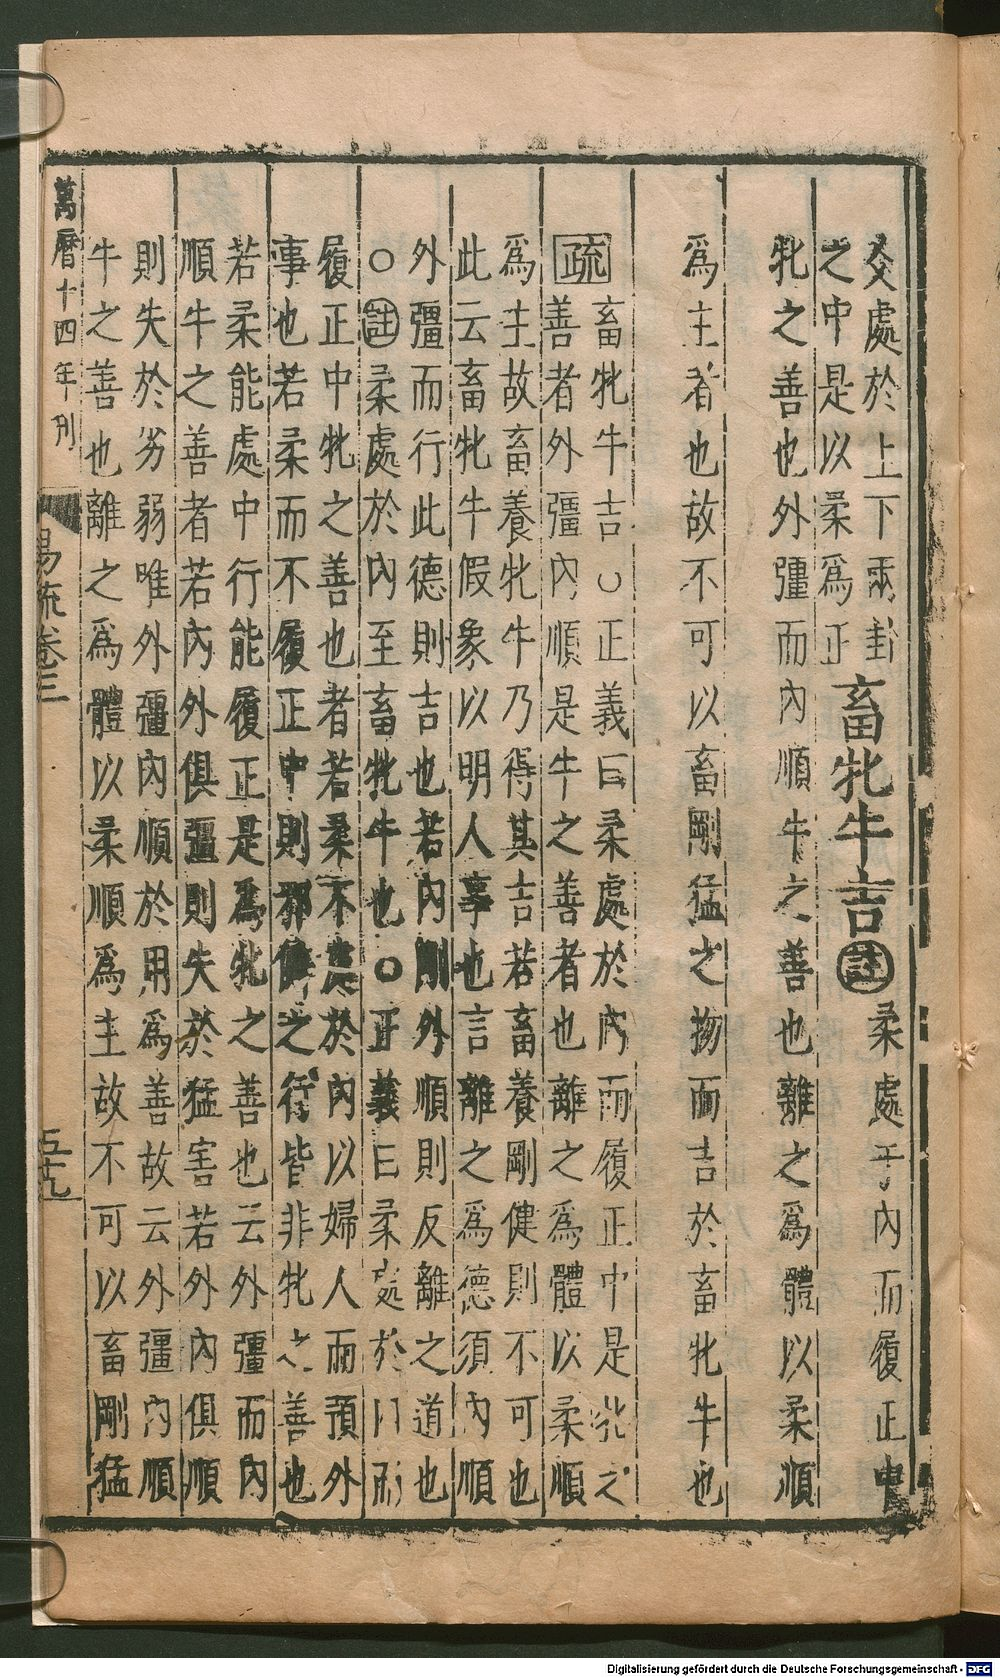 爻處於上下兩卦
之中是以柔爲正
畜牝牛吉
註
柔處于內而履正中
牝之善也外彊而內順牛之善也離之爲體以柔順
爲主者也故不可以畜剛猛之物而吉於畜牝牛也
疏
畜牝牛吉○正義曰柔處於內而履正中是牝之
善者外彊內順是牛之善者也離之爲體以柔順
爲主故畜養牝牛乃得其吉若畜養剛健則不可也
此云畜牝牛假象以明人事也言離之爲德須內順
外彊而行此德則吉也若內剛外順則反離之道也
○註柔處於內至畜牝牛也○正義曰柔處於內而
履正中牝之善也者若柔不處於內以婦人而預外
事也若柔而不履正中則邪僻之行皆非牝之善也
若柔能處中行能履正是爲牝之善也云外彊而內
順牛之善者若內外俱彊則失於猛害若外內俱順
則失於劣弱唯外彊內順於用爲善故云外彊內順
牛之善也離之爲體以柔順爲主故不可以畜剛猛
萬曆十四年刊
易疏卷三
五十九
Digitalisierung gefördert durch die Deutsche Forschungsgemeinschaft - DFG